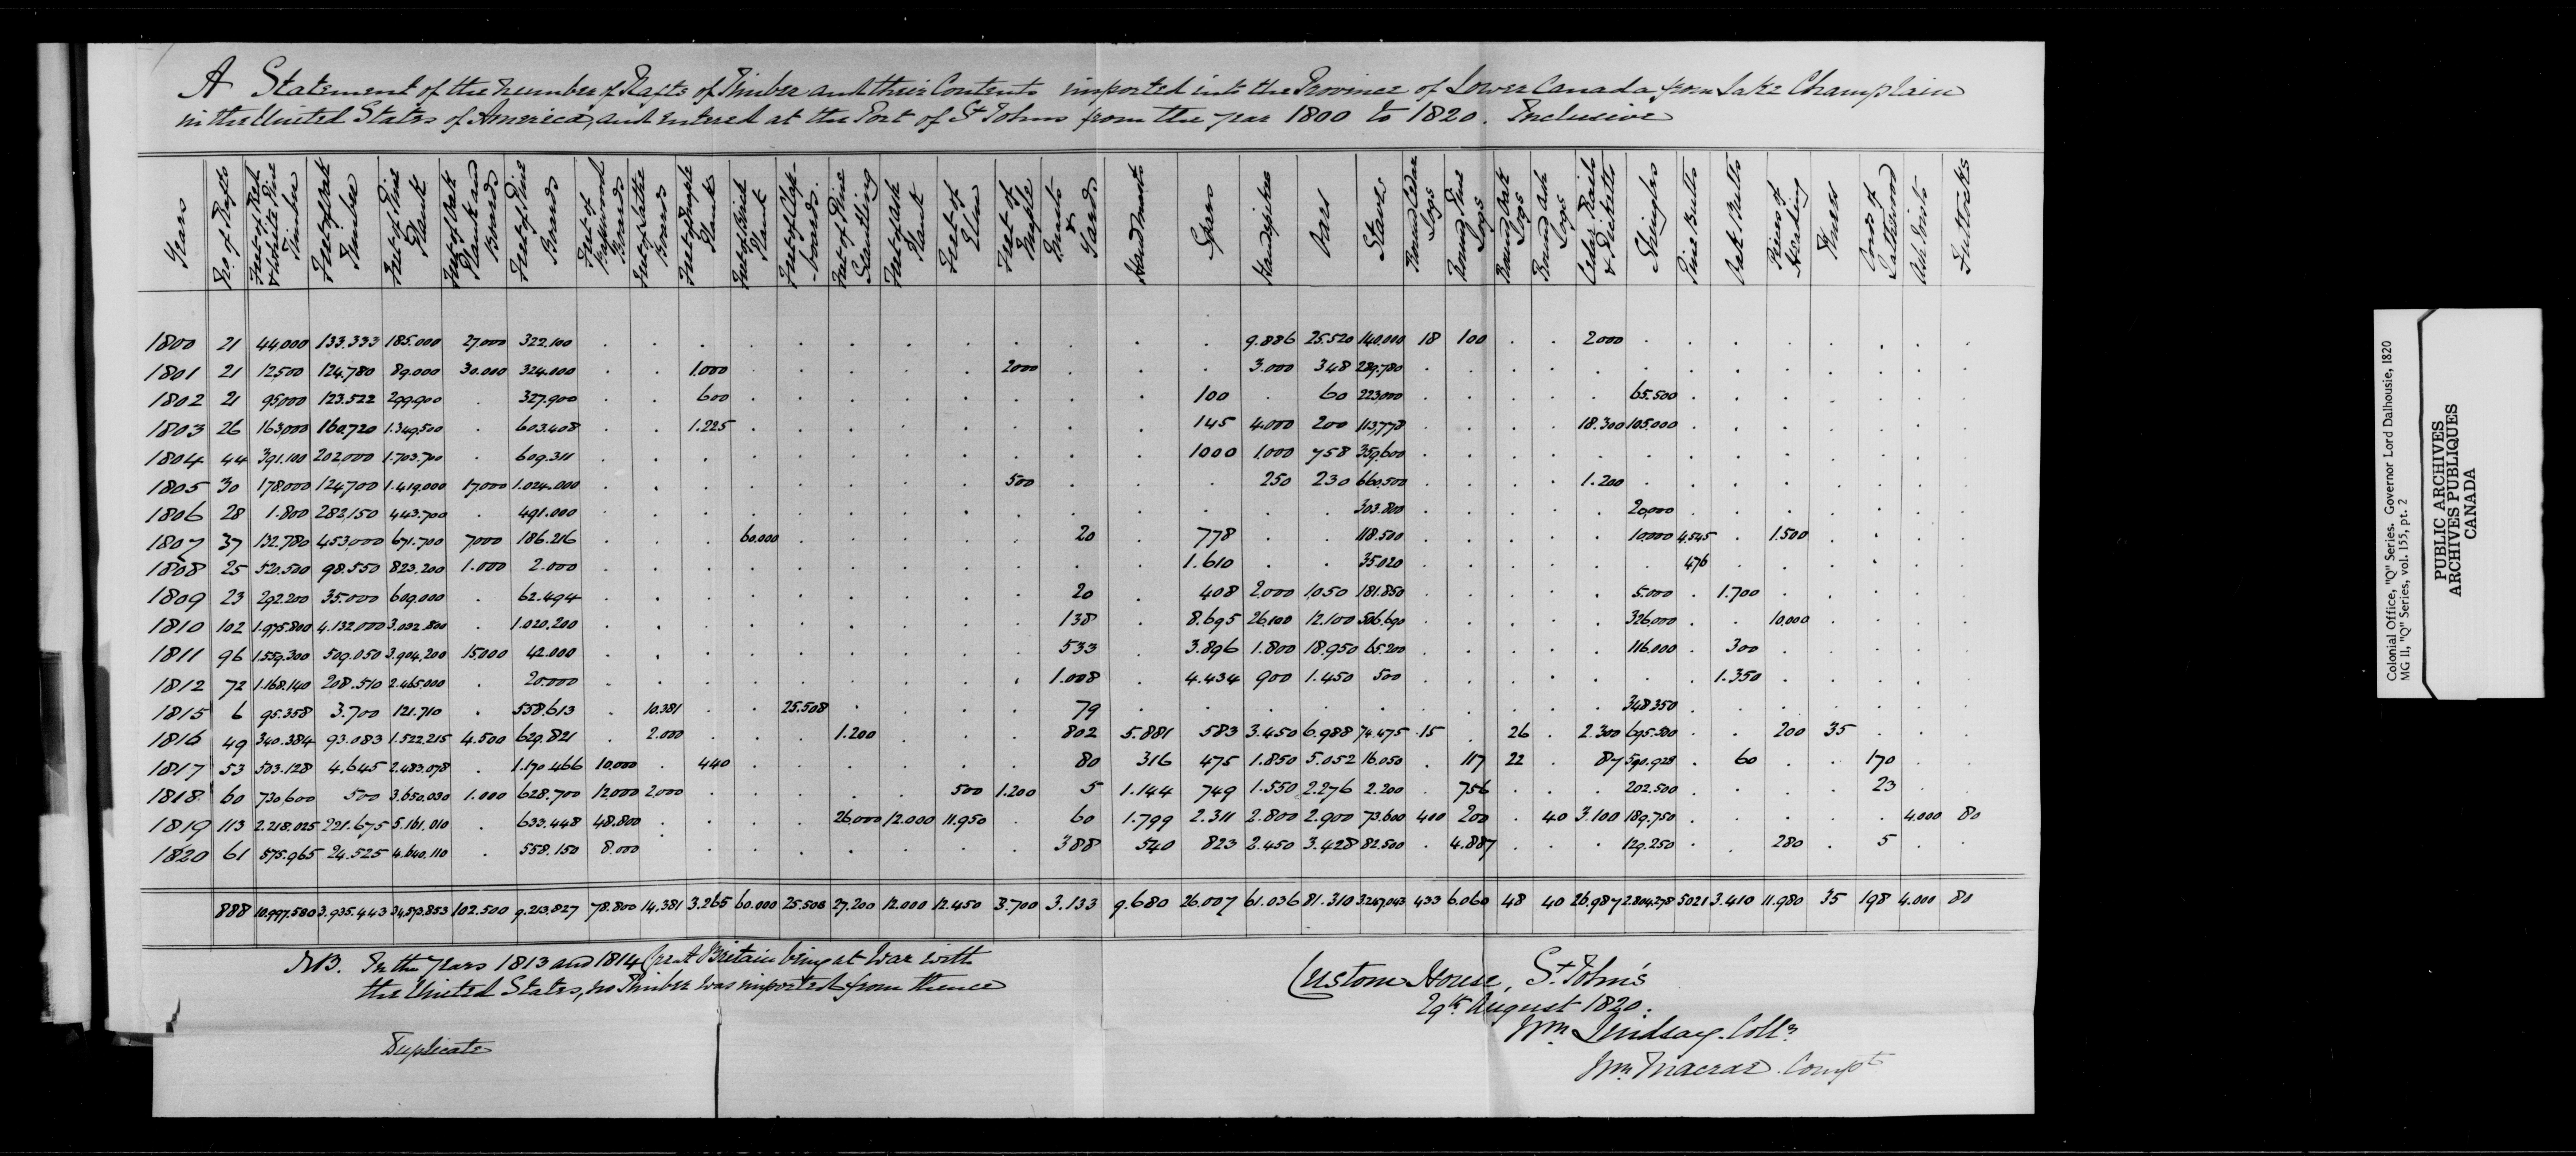 A Statement of the number of Rafts of Timber and their Contents imported into the Province of Lower Canada from Lake Champlain
in the United States of America, and entered at the Port of St Johns from the year 1800 to 1820. Inclusive
Years | No. of Rafts | Feet of Red & White Pine Timber | Feet of Oak Timber | Feet of Pine Plank | Feet of Oak Plank and Boards | Feet of Pine Boards | Feet of Basswood Boards | Feet of Boards | Feet of Maple Plank | Feet of Birch Plank | Feet of Clap-boards. | Feet of Pine Scantling | Feet of Ash Plank | Feet of Elm | Feet of Maple | Masts & Yards | Hand Masts | Spars | Handspikes | Oars | Staves | Round Cedar Logs | Round Pine Logs | Round Oak Logs | Round Ash Logs | Cedar Rails & Picketts | Shingles | Pine Butts | Oak Butts | Pieces of | Knees | Cords of Lathwood | Futtocks
1800 21 44,000 133.333 185.000 27,000 322.100 . . . . . . . . . . . . . 9.886 25.520 140.000 18 100 . . 2000 . . . . . . . .
1801 21 12,500 124.780 89.000 30.000 324.000 . . 1.000 . . . . . 2000 . . . 3.000 348 289.780 . . . . . . . . . . . . .
1802 21 95,000 123.522 299.900 . 327.900 . . 600 . . . . . . . . 100 . 60 223,000 . . . . . 65.500 . . . . . . .
1803 26 163,000 160,720 1.349,500 . 603.408 . . 1.225 . . . . . . . . 145 4.000 200 113,778 . . . . 18.300 105.000 . . . . . . .
1804 44 391.100 202,000 1.703.700 . 609.311 . . . . . . . . . . . 1000 1,000 758 359,600 . . . . . . . . . . . . .
1805 30 178.000 124700 1.419,000 17,000 1.024.000 . . . . . . . . 500 . . . 250 230 660,500 . . . . 1.200 . . . . . . . .
1806 28 1.800 282,150 443.700 . 491.000 . . . . . . . . . . . . . . 303.800 . . . . . 20,000 . . . . . . .
1807 37 132.780 453,000 671.700 7,000 186.216 . . . 60.000 . . . . . 20 . 778 . . 118.500 . . . . . 10.000 4.545 . 1.500 . . . .
1808 25 520.500 98.550 823.200 1.000 2.000 . . . . . . . . . . . 1.610 . . 35.020 . . . . . . 476 . . . . . .
1809 23 292.200 35.000 609.000 . 62.494 . . . . . . . . . 20 . 408 2,000 1,050 181.850 . . . . . 5.000 . 1.700 . . . . .
1810 102 1.975.800 4.132,000 3.032.800 . 1.020.200 . . . . . . . . . 138 . 8.695 26,100 12.100 506.690 . . . . . 326,000 . . 10,000 . . . .
1811 96 1.559.300 509.050 3.904.200 15,000 42.000 . . . . . . . . . 533 . 3.896 1.800 18.950 65.200 . . . . . 116.000 . 300 . . . . .
1812 72 1.168.140 208.510 2.465.000 . 20.000 . . . . . . . . . 1.008 . 4.434 900 1.450 500 . . . . . . . 1.350 . . . . .
1815 6 95.358 3.700 121.710 . 558.613 . 10.381 . . 25.508 . . . . 79 . . . . . . . . . . 348.350 . . . . . . .
1816 49 340.384 93.083 1.522.215 4.500 629.821 . 2.000 . . . 1.200 . . . 802 5.881 583 3.450 6.988 74.475 15 . 26 . 2.300 695.500 . . 200 35 . . .
1817 53 503.128 4.645 2.483.078 . 1.170.466 10.000 . 440 . . . . . . 80 316 475 1.850 5.052 16.050 . 117 22 . 87 590.928 . 60 . . 170 . .
1818 60 730,600 500 3.650.030 1.000 628.700 12000 2,000 . . . . . 500 1.200 5 1.144 749 1.550 2.276 2.200 . 756 . . . 202.500 . . . . 23 . .
1819 113 2.218.025 221.675 5.161.010 . 633.448 48.800 . . . . 26,000 12.000 11.950 . 60 1.799 2.311 2.800 2.900 73.600 400 200 . 40 3.100 189.750 . . . . . 4.000 80
1820 61 575.965 24.525 4.640.110 . 558.150 8.000 . . . . . . . . 388 540 823 2.450 3.428 82.500 . 4.887 . . . 129.250 . . 280 . 5 . .
888 10.997.580 3.935.443 34,573.853 102.500 9.213.827 78.800 14,381 3.265 60.000 25.508 27.200 12.000 12.450 3.700 3.133 9.680 26.007 61.036 81.310 3.247,043 433 6.060 48 40 26.987 2.804.278 5021 3.410 11.980 35 198 4.000 80
NB. In the Years 1813 and 1814 Great Britain being at War with
the United States, no Timber was imported from thence
Duplicate
Custom House, St. John's
29th August 1820.
Wm Lindsay. Collr
Wm Macrae. Compt
Colonial Office, "Q" Series. Governor Lord Dalhousie, 1820
MG 11, "Q" Series, vol. 155, pt. 2
PUBLIC ARCHIVES
ARCHIVES PUBLIQUES
CANADA